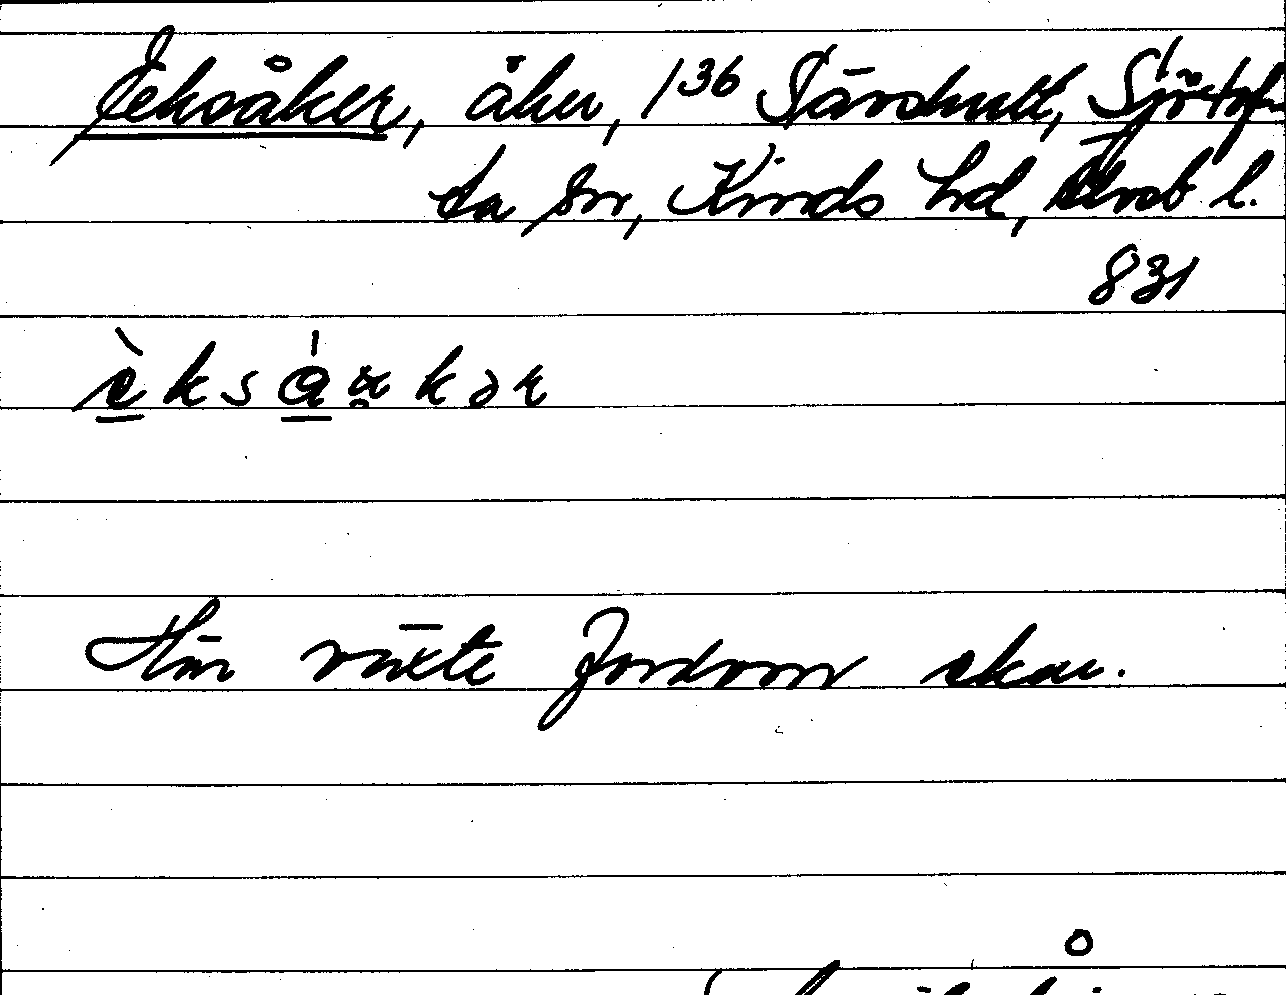 Eksåker, åker, 136 Särshult, Sjötof-
ta sn, Kinds hd, Älvsb l.
831
èksáu̯kər
Här växte fordom ekar.